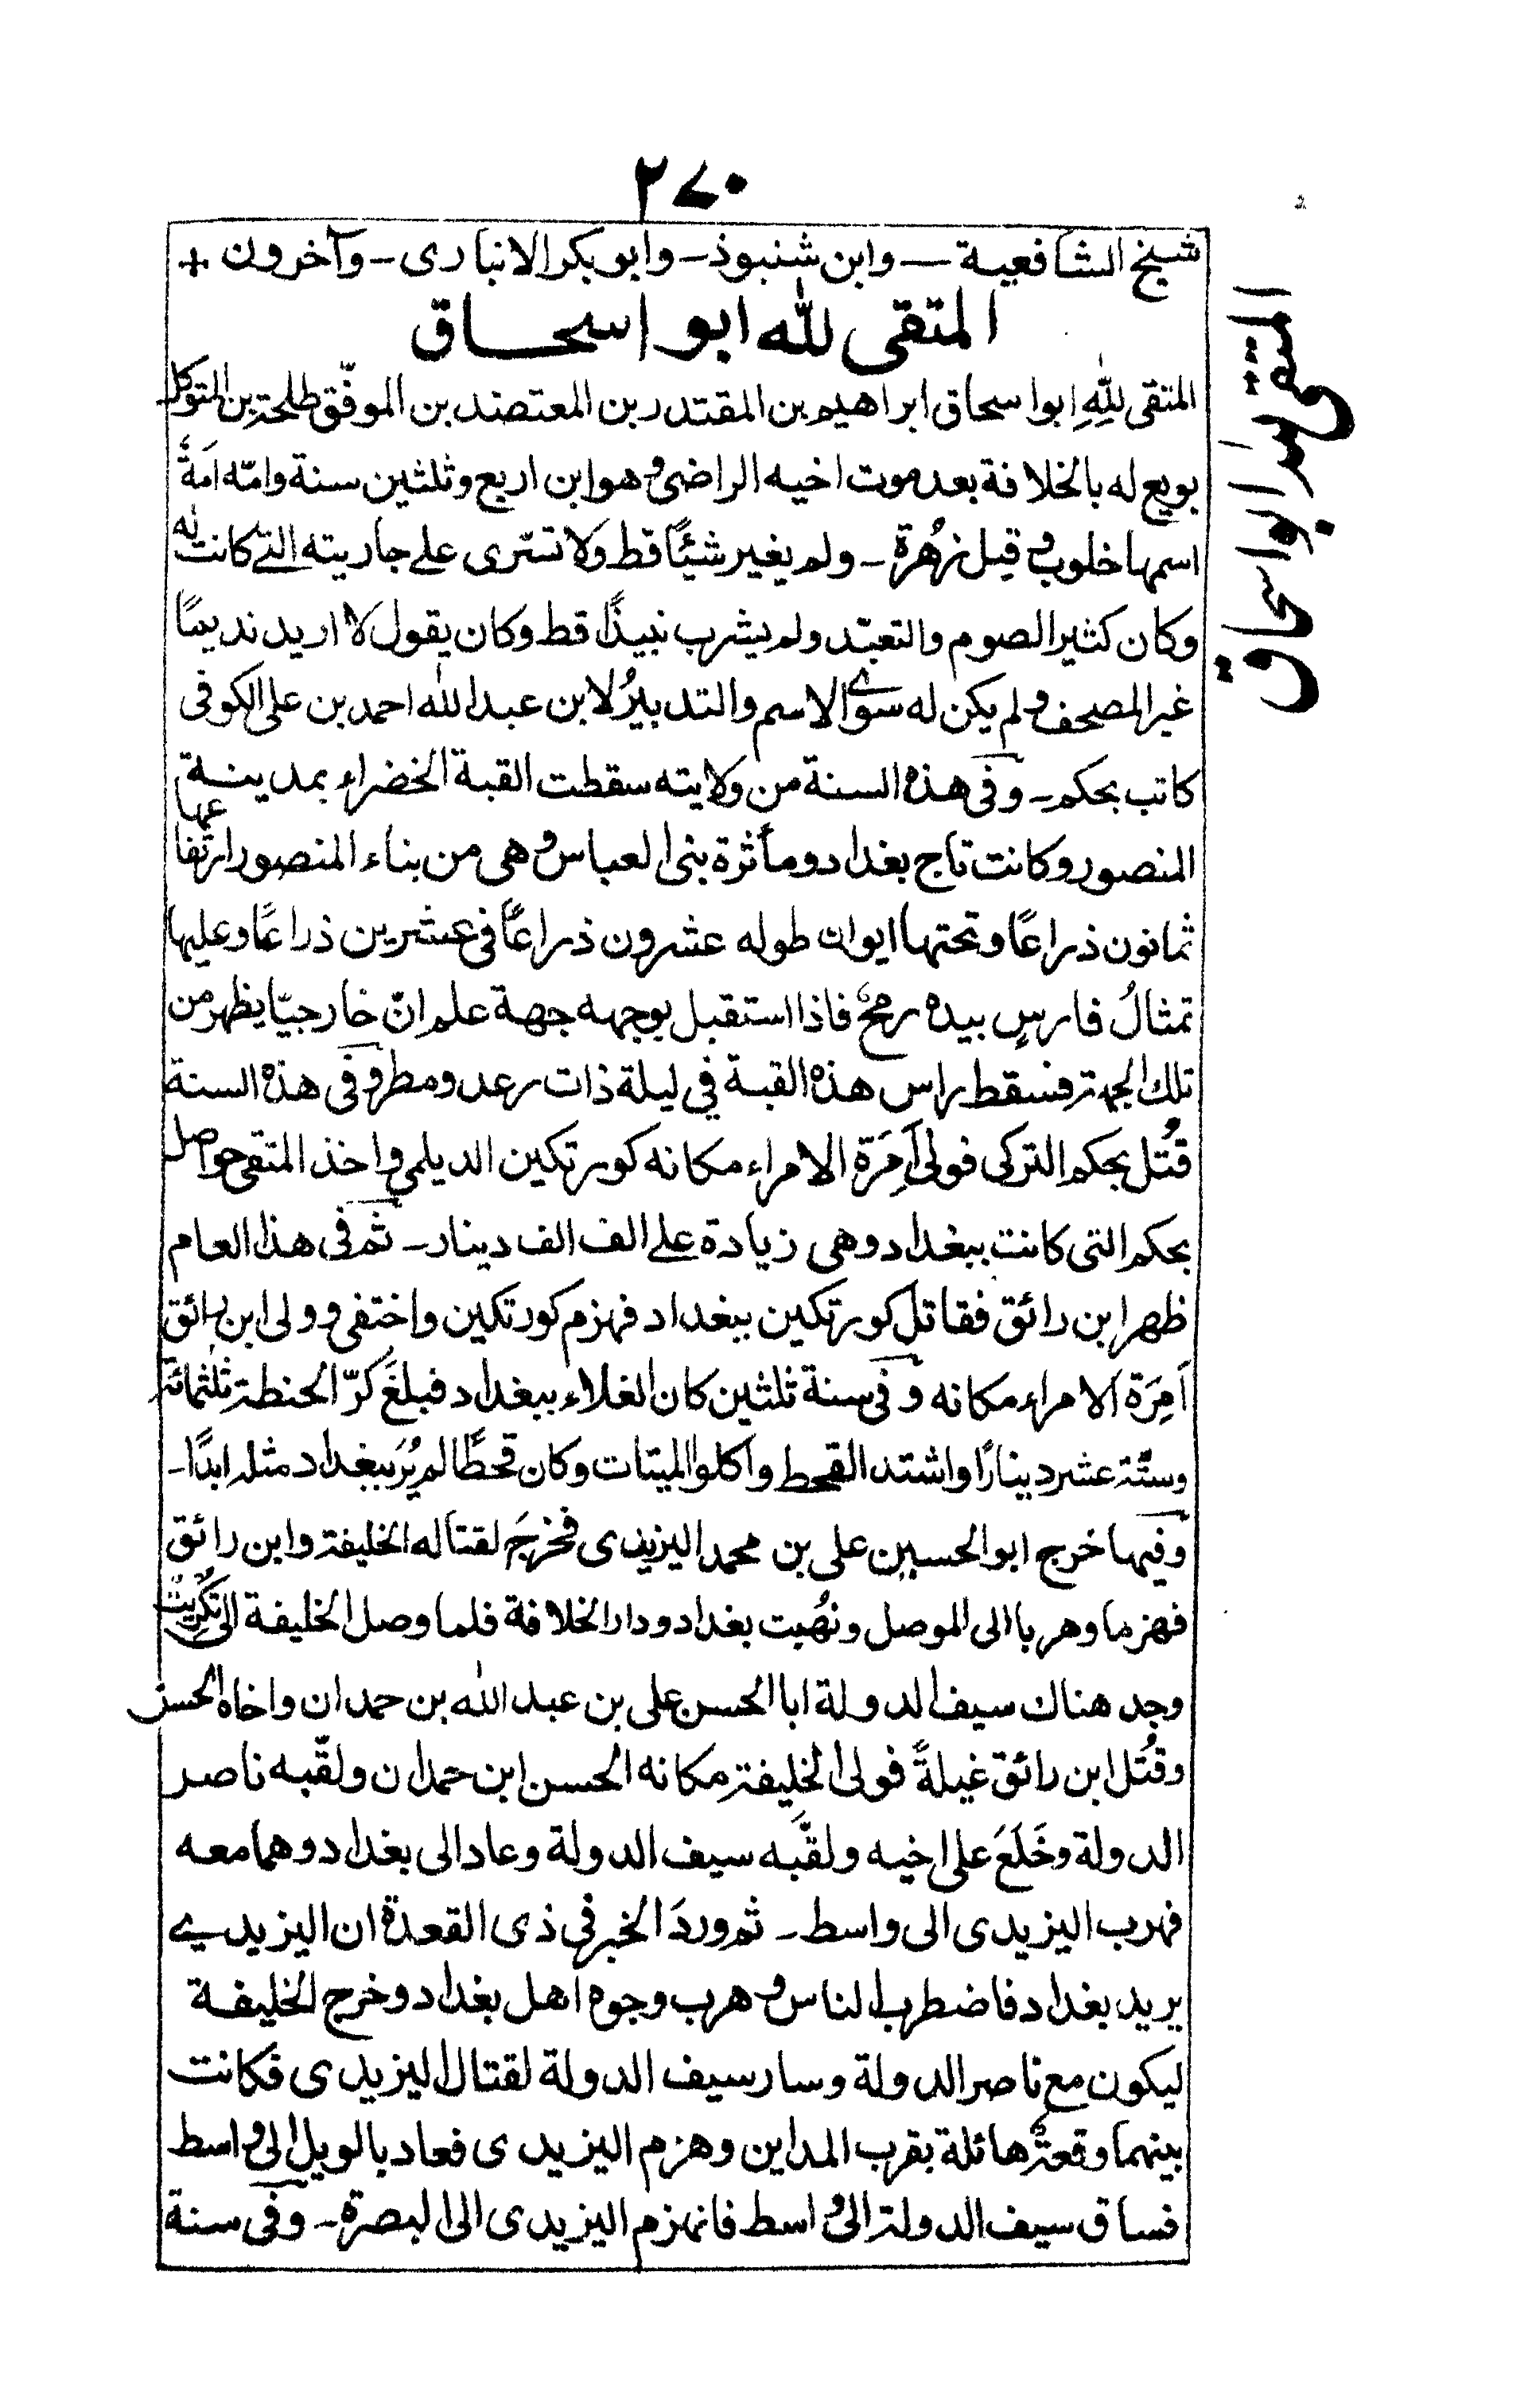 ٢٧٠
شيخ الشافعية — وابن شنبوذ - وابو بكر الانبارى - وآخرون +
المتقى لله ابو اسحاق
المتقى لله ابو اسحاق
المتقى لِلّٰهِ ابوا سحاق ابراهيم بن المقتدر بن المعتضد بن الموفّق طلحة بن المتوكل
بويع له بالخلافة بعد موت اخيه الراضى وهو ابن اربع وثلثين سنة وامّه اَمَةٌ
اسمها خلوب وقيل زُهرة - ولم يغير شيئًا قط ولا تسّرى على جاريته التى كانت له
وكان كثير الصوم والتعبّد ولم يشرب نبيذًا قط وكان يقول لا اريد نديمًا
غير المصحف ولم يكن له سوى الاسم والتدبيرُ لابن عبد الله احمد بن على الكوفى
كاتب بجكم - وفى هذه السنة من ولايته سقطت القبة الخضراء بمدينة
المنصور وكانت تاج بغداد ومأثرة بنى العباس وهى من بناء المنصور ارتفاعها
ثمانون ذراعًا وتحتها ايوان طوله عشرون ذراعًا فى عشرين ذراعًا وعليها
تمثالُ فارسٍ بيده رمحٌ فاذا استقبل بوجهه جهة علم انّ خارجيّا يظهر من
تلك الجهة فسقط راس هذه القبة في ليلة ذات رعد ومطر وفى هذه السنة
قُتل بجكم التركى فولى اَمِرَة الامراء مكانه كورتكين الديلمي واخذ المتقى حواصل
بجكم التى كانت ببغداد وهى زيادة على الف الف دينار - ثم فى هذا العام
ظهر ابن رائق فقاتل كورتكين ببغداد فهزم كورتكين واختفى وولى ابن رائق
اَمِرَة الامراء مكانه وفى سنة ثلثين كان الغلاء ببغداد فبلغَ كرّ الحنطة ثلثمائة
وستّة عشر دينارًا واشتد القحط واكلوا الميتات وكان قحطًا لم يُرَ ببغداد مثله ابدًا -
وفيها خرج ابو الحسين على بن محمد اليزيدى فخرجَ لقتاله الخليفة وابن رائق
فهزما وهربا الى الموصل ونُهبت بغداد ودار الخلافة فلما وصل الخليفة الى تكريت
وجد هناك سيف الدولة ابا الحسن على بن عبد الله بن حمدان واخاه الحسن
وقُتل ابن رائق غيلةً فولى الخليفة مكانه الحسن ابن حمدان ولقّبه ناصر
الدولة وخَلَعَ على اخيه ولقّبه سيف الدولة وعاد الى بغداد وهما معه
فهرب اليزيدى الى واسط - ثم وردَ الخبر فى ذى القعدة ان اليزيدي
يريد بغداد فاضطرب الناس وهرب وجوه اهل بغداد وخرج الخليفة
ليكون مع ناصر الدولة وسار سيف الدولة لقتال اليزيدى فكانت
بينهما وقعةٌ هائلة بقرب المداين وهزم اليزيدى فعاد بالويل الى واسط
فساق سيف الدولة الى واسط فانهزم اليزيدى الى البصرة - وفى سنة